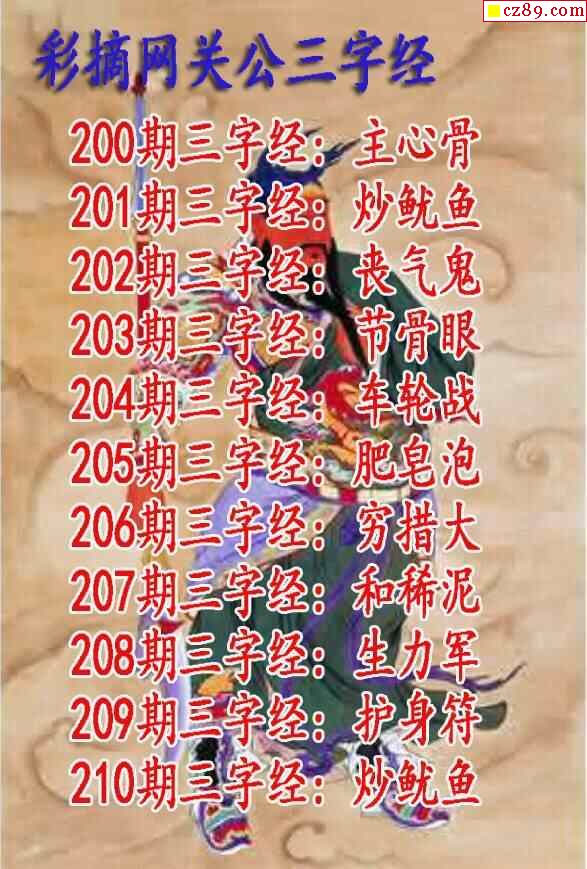 cz89.com
彩摘网关公三字经
200期三字经：主心骨
201期三字经：炒鱿鱼
202期三字经：丧气鬼
203期三字经：节骨眼
204期三字经：车轮战
205期三字经：肥皂泡
206期三字经：穷措大
207期三字经：和稀泥
208期三字经：生力军
209期三字经：护身符
210期三字经：炒鱿鱼